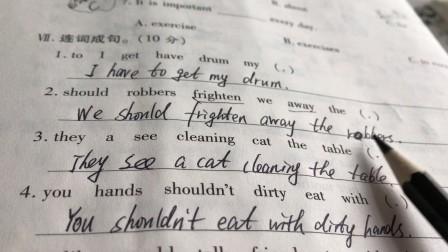 7. It is important ______ every day.
A. exercise B. exercises
Ⅶ. 连词成句。(10 分)
1. to I get have drum my (.)
I have to get my drum.
2. should robbers frighten we away the (.)
We should frighten away the robbers.
3. they a see cleaning cat the table (.)
They see a cat cleaning the table.
4. you hands shouldn't dirty eat with (.)
You shouldn't eat with dirty hands.